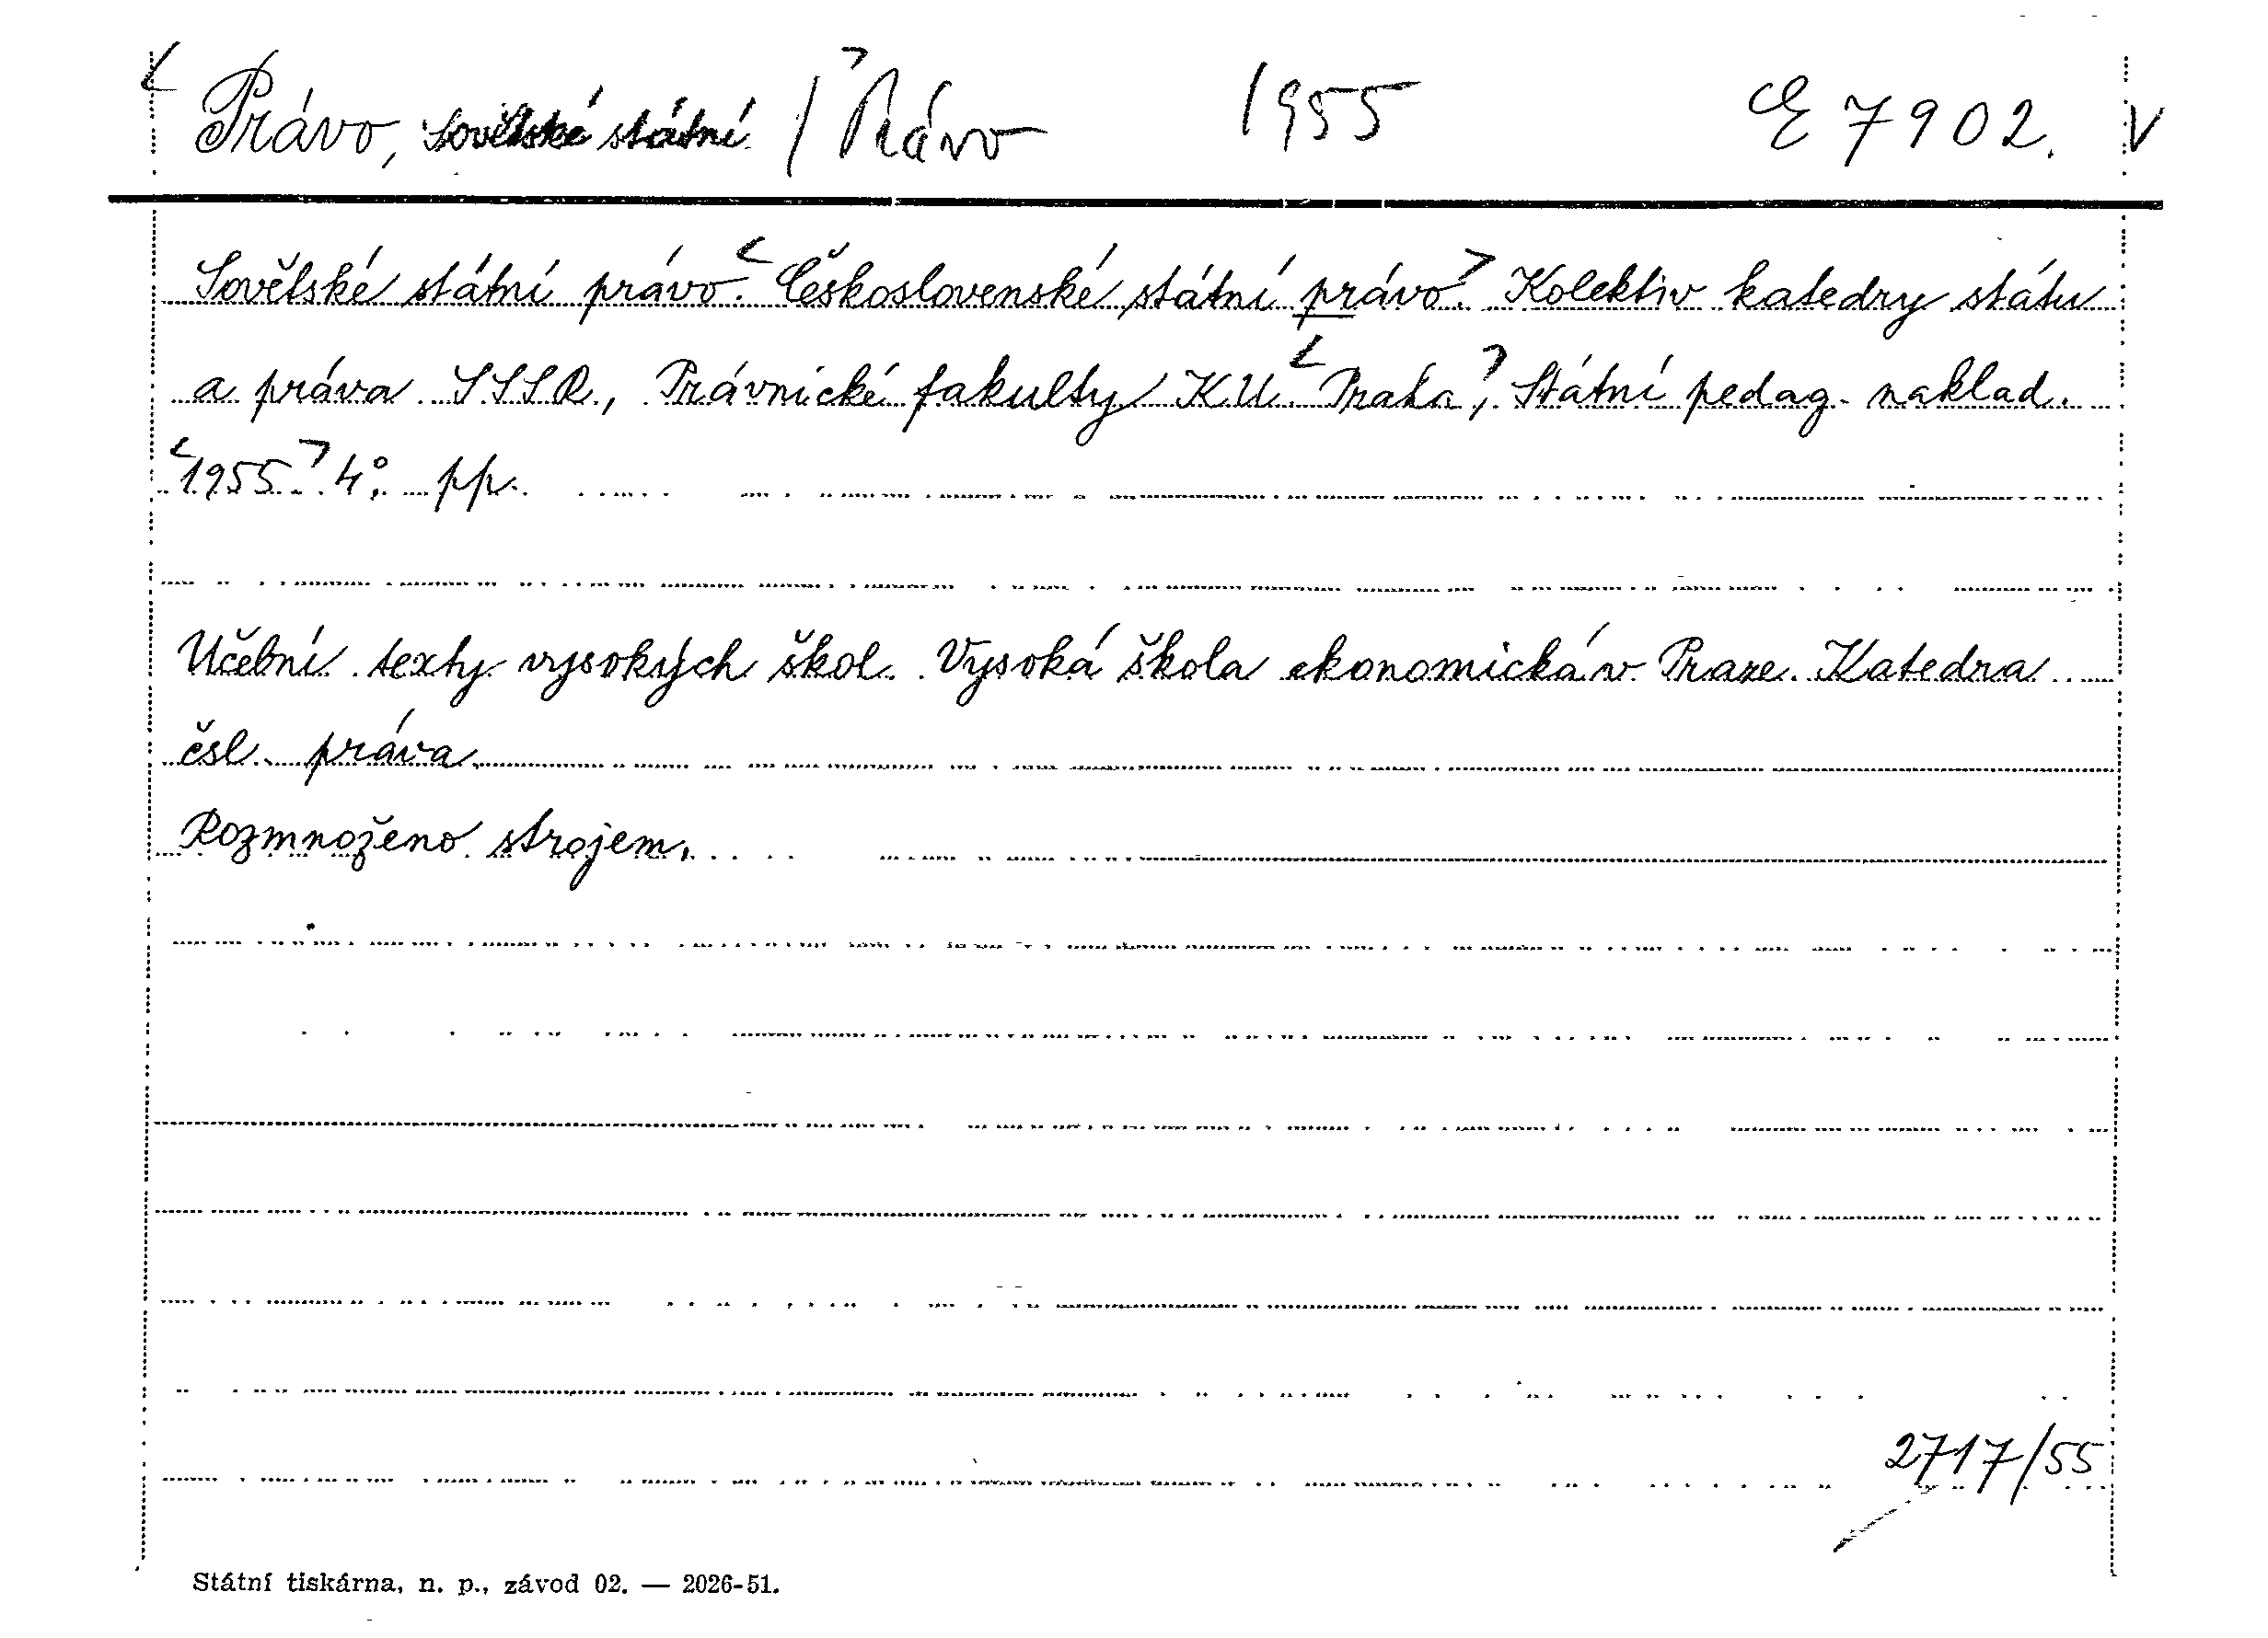 < Právo, Sovětské státní / Právo > 1955 E 7902. V
Sovětské státní právo. < Československé státní právo. > Kolektiv katedry státu
a práva SSSR, Právnické fakulty KU. < Praha, > Státní pedag. naklad.
< 1955. > 4°. pp.
Učební texty vysokých škol. Vysoká škola ekonomická v Praze. Katedra
čsl. práva.
Rozmnoženo strojem.
2717/55
Státní tiskárna, n. p., závod 02. — 2026-51.